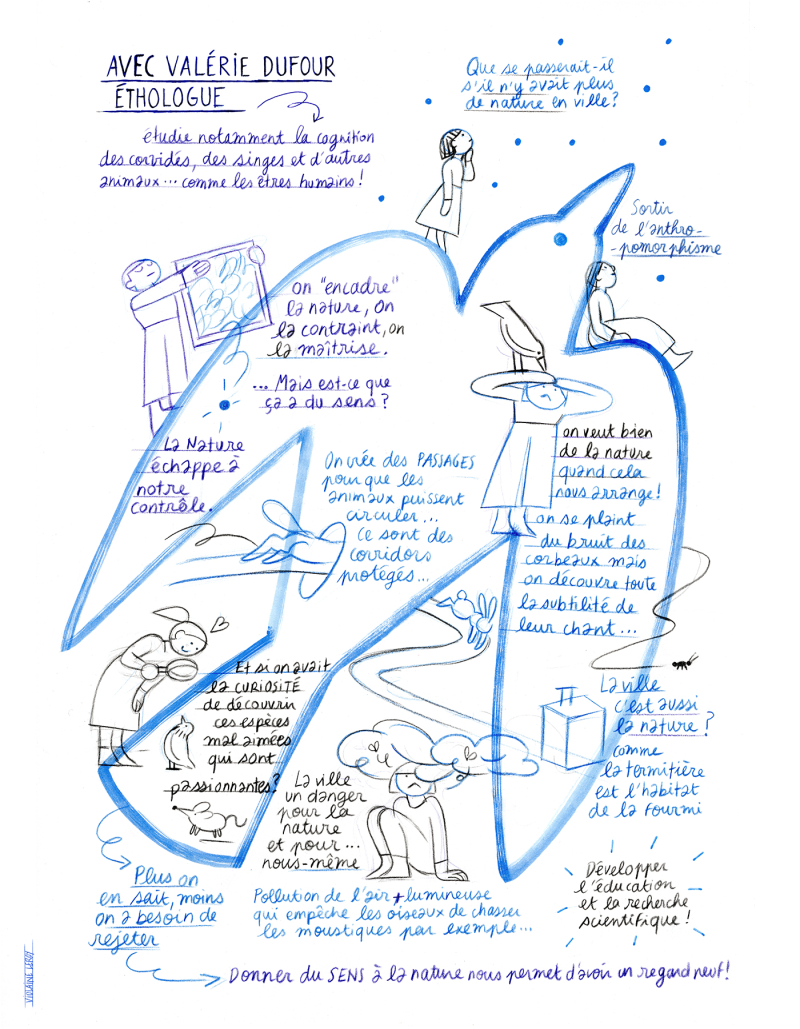 AVEC VALÉRIE DUFOUR
ÉTHOLOGUE
étudie notamment la cognition
des corvidés, des singes et d'autres
animaux... comme les êtres humains !
Que se passerait-il
s'il n'y avait plus
de nature en ville ?
Sortir
de l'anthro-
-pomorphisme
on "encadre"
la nature, on
la contraint, on
la maîtrise.
... Mais est-ce que
ça a du sens ?
La Nature
échappe à
notre
contrôle.
On crée des PASSAGES
pour que les
animaux puissent
circuler...
Ce sont des
corridors
protégés...
on veut bien
de la nature
quand cela
nous arrange !
on se plaint
du bruit des
corbeaux mais
on découvre toute
la subtilité de
leur chant...
Et si on avait
la CURIOSITÉ
de découvrir
ces espèces
mal aimées
qui sont
passionnantes ?
La ville
c'est aussi
la nature ?
comme
la termitière
est l'habitat
de la fourmi
La ville
un danger
pour la
nature
et pour...
nous-même
Plus on
en sait, moins
on a besoin de
rejeter
Pollution de l'air + lumineuse
qui empêche les oiseaux de chasser
les moustiques par exemple...
Développer
l'éducation
et la recherche
scientifique !
Donner du SENS à la nature nous permet d'avoir un regard neuf !
VIOLAINE LEROY